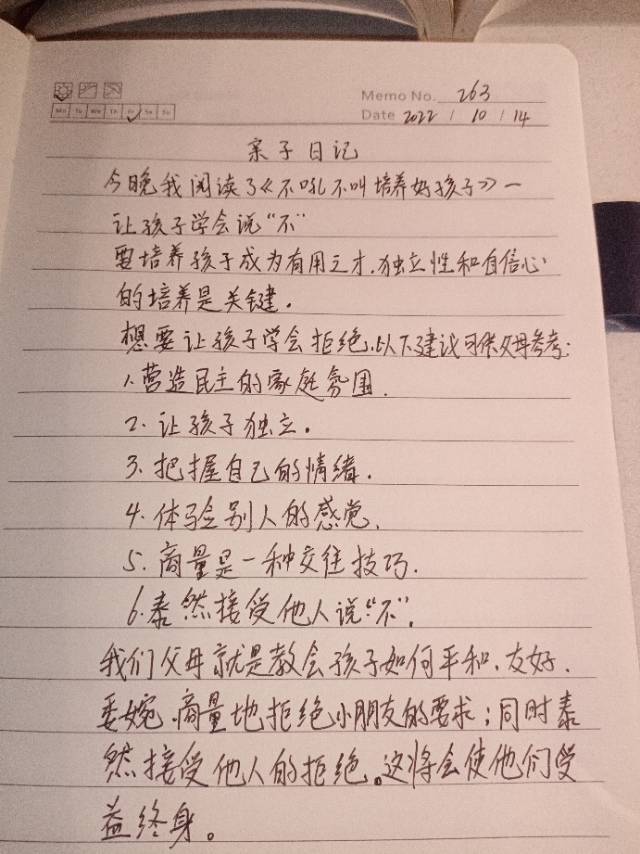 Memo No. 263
Mo Tu We Th Fr Sa Su
Date 2022 / 10 / 14
亲子日记
今晚我阅读了《不吼不叫培养好孩子》一
让孩子学会说“不”
要培养孩子成为有用之才，独立性和自信心
的培养是关键。
想要让孩子学会拒绝，以下建议可供父母参考：
1.营造民主的家庭氛围.
2.让孩子独立。
3.把握自己的情绪.
4.体验别人的感觉.
5.商量是一种交往技巧.
6.泰然接受他人说“不”.
我们父母就是教会孩子如何平和、友好、
委婉、商量地拒绝小朋友的要求；同时泰
然接受他人的拒绝。这将会使他们受
益终身。